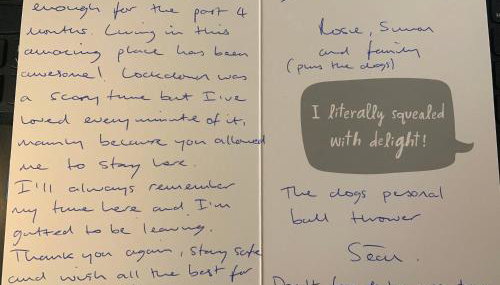 enough for the past 4
months. Living in this
amazing place has been
awesome! Lockdown was
a scary time but I've
loved every minute of it,
mainly because you allowed
me to stay here.
I'll always remember
my time here and I'm
gutted to be leaving.
Thank you again, stay safe
and wish all the best for
Rosie, Simon
and family
(plus the dogs)
I literally squealed
with delight!
The dogs personal
ball thrower
Seán.